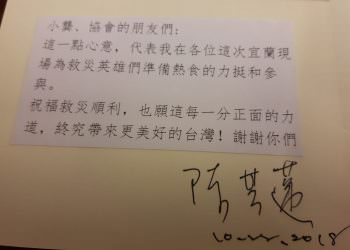 小龔、協會的朋友們：
這一點心意，代表我在各位這次宜蘭現
場為救災英雄們準備熱食的力挺和參
與。
祝福救災順利，也願這每一分正面的力
道，終究帶來更美好的台灣！謝謝你們